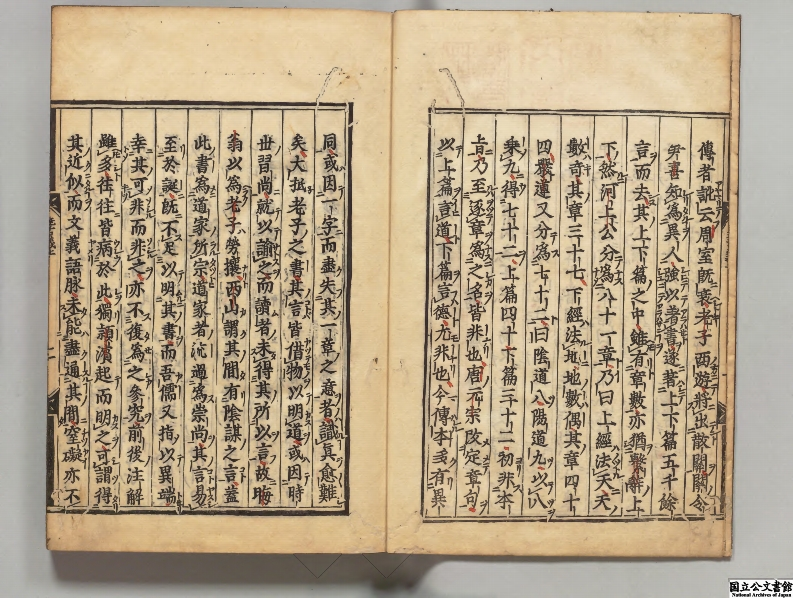 傳者訛云周室既衰老子西遊將出散關關令
尹喜知為異人強以著書遂著上下篇五千餘
言而去其上下篇之中雖有章數亦猶繫辭上
下然河上公分為八十一章乃曰上經法天天
數奇其章三十七下經法地地數偶其章四十
四嚴遵又分為七十二曰陰道八陽道九以八
乗九得七十二上篇四十下篇三十二初非本
旨乃至逐章為之名皆非也唐元宗改定章句
以上篇言道下篇言德尤非也今傳本多有異
同或因一字而盡失其一章之意者識真愈難
矣大抵老子之書其言皆借物以明道或因時
世習尚就以諭之而讀者未得其所以言故晦
翁以為老子勞攘西山謂其間有陰謀之言蓋
此書為道家所宗道家者流過為崇尚其言易
至於誕既不足以明其書而吾儒又指以異端
幸其可非而非之亦不復為之參究前後注解
雖多往往皆病於此獨頴濱起而明之可謂得
其近似而文義語脉未能盡通其間窒礙亦不
国立公文書館
National Archives of Japan